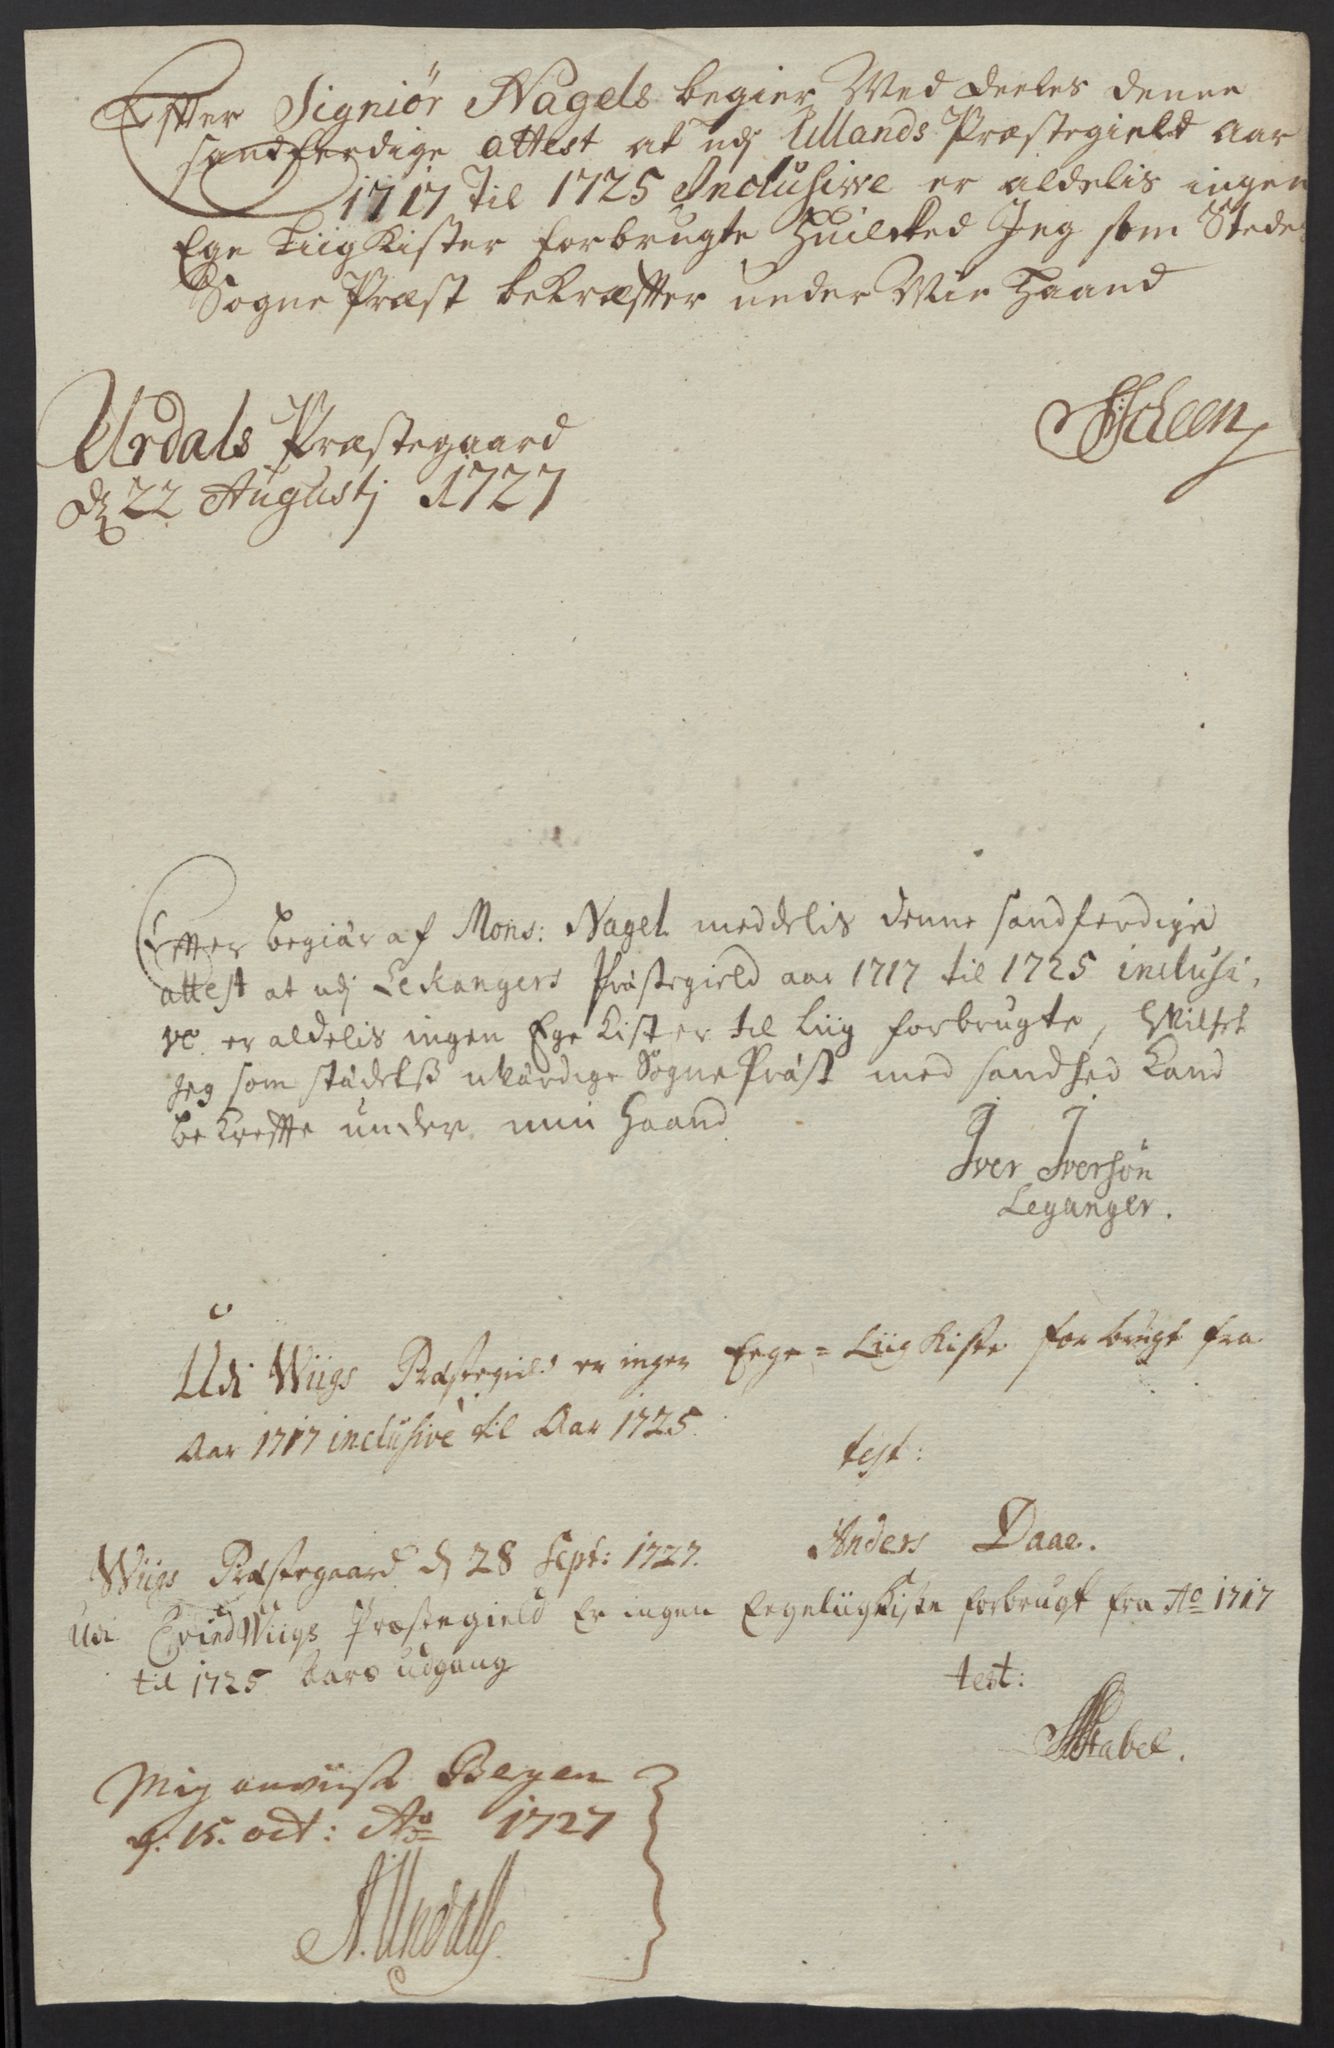 Effter Signiör Nagels begier Med deeles denne
sandferdige attest at udj Ullands Præstegield aar
1717 til 1725 Inclusive er aldelis ingen
Ege Liig Kister forbrugte Huilcked Jeg som Stedes
Sogne Præst bekræffter under Min Haand
Scheen
Urdals Præstegaard
22 Augustj 1727
Efter begiär af Mons: Nagel meddelis denne sandferdige
attest at udj Lekangers Prästegield aar 1717 til 1725 inclusi,
ve er aldelis ingen Ege Kister til Liig forbrugte, Hvilket
Jeg som städets uvärdige Sogne Präst med sandhed Kand
be Kreffte under min Haand
Iver Iversön
Leganger.
Udi Wiigs Præstegield er ingen Eege = Liig Kiste forbrugt fra
Aar 1717 inclusive til Aar 1725.
test:
Anders Daae.
Wiigs Præstegaard d 28 Sept: 1727.
Udi EvindWiigs Præstegield Er ingen EegeliigKiste forbrugt fra Ao 1717
til 1725 Aars udgang
test:
Stabel.
Mig anviist Bergen
d: 15. oct: Ao 1727
A. Undall